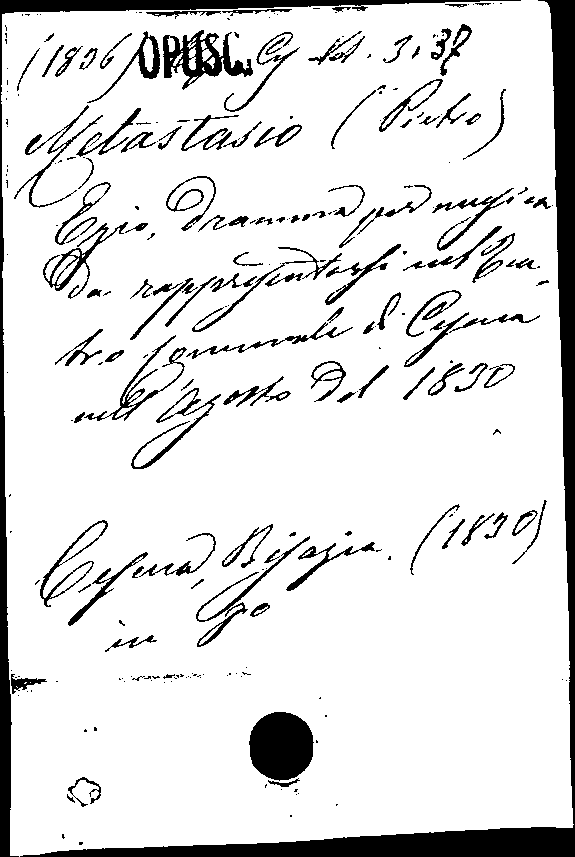 (1836) OPUSC. Cs Not. 3.37
Metastasio (Pietro)
Ezio, Dramma per musica
da rappresentarsi nel Tea-
tro Comunale di Cesena
nell'Agosto del 1830
Cesena, Bisazia. (1830)
in 8o